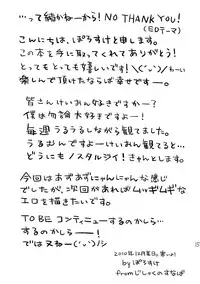 …って続かねーから！NO THANK YOU!
（EDテーマ）
こんにちは、ぽろすけと申します。
この本を手に取ってくれてありがとう！
とってもとっても嬉しいです！＼(^ω^)／わーい
楽しんで頂けたなら幸せですー。
皆さんけいおん好きですかー？
僕は勿論大好きですよー！
毎週うるうるしながら観てました。
うるおんですよーけいおんですよーと…
どうにもノスタルジイ！きゅんとします。
今回はあずあずにゃんにゃんな感じ
でしたが、次回があればムッギムギな
エロを描きたいです。
TO BE コンティニューするのかしら…
するのかしらー！
ではヌねー(^ω^)ノシ
2010年12月
byぽろすけ
fromじしゃくのすなば
15